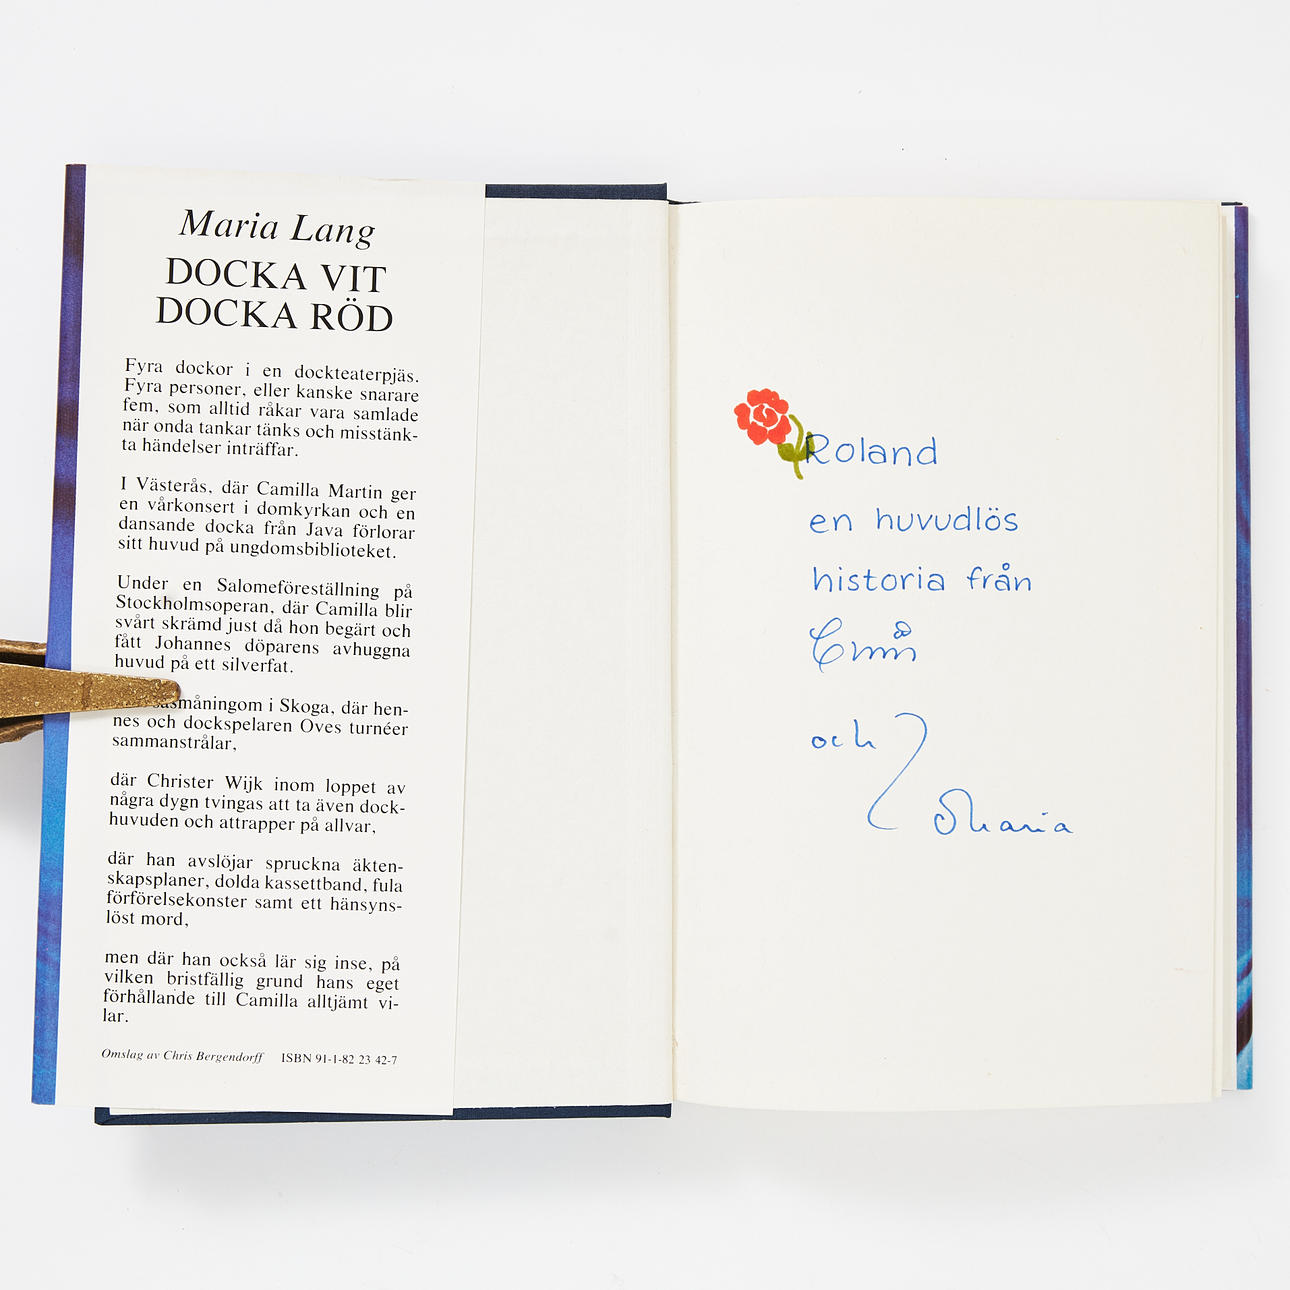 Maria Lang
DOCKA VIT
DOCKA RÖD
Fyra dockor i en dockteaterpjäs.
Fyra personer, eller kanske snarare
fem, som alltid råkar vara samlade
när onda tankar tänks och misstänk-
ta händelser inträffar.
I Västerås, där Camilla Martin ger
en vårkonsert i domkyrkan och en
dansande docka från Java förlorar
sitt huvud på ungdomsbiblioteket.
Under en Salomeföreställning på
Stockholmsoperan, där Camilla blir
svårt skrämd just då hon begärt och
fått Johannes döparens avhuggna
huvud på ett silverfat.
i Skoga, där hen-
nes och dockspelaren Oves turnéer
sammanstrålar,
där Christer Wijk inom loppet av
några dygn tvingas att ta även dock-
huvuden och attrapper på allvar,
där han avslöjar spruckna äkten-
skapsplaner, dolda kassettband, fula
förförelsekonster samt ett hänsyns-
löst mord,
men där han också lär sig inse, på
vilken bristfällig grund hans eget
förhållande till Camilla alltjämt vi-
lar.
Omslag av Chris Bergendorff ISBN 91-1-82 23 42-7
Roland
en huvudlös
historia från
och
Maria